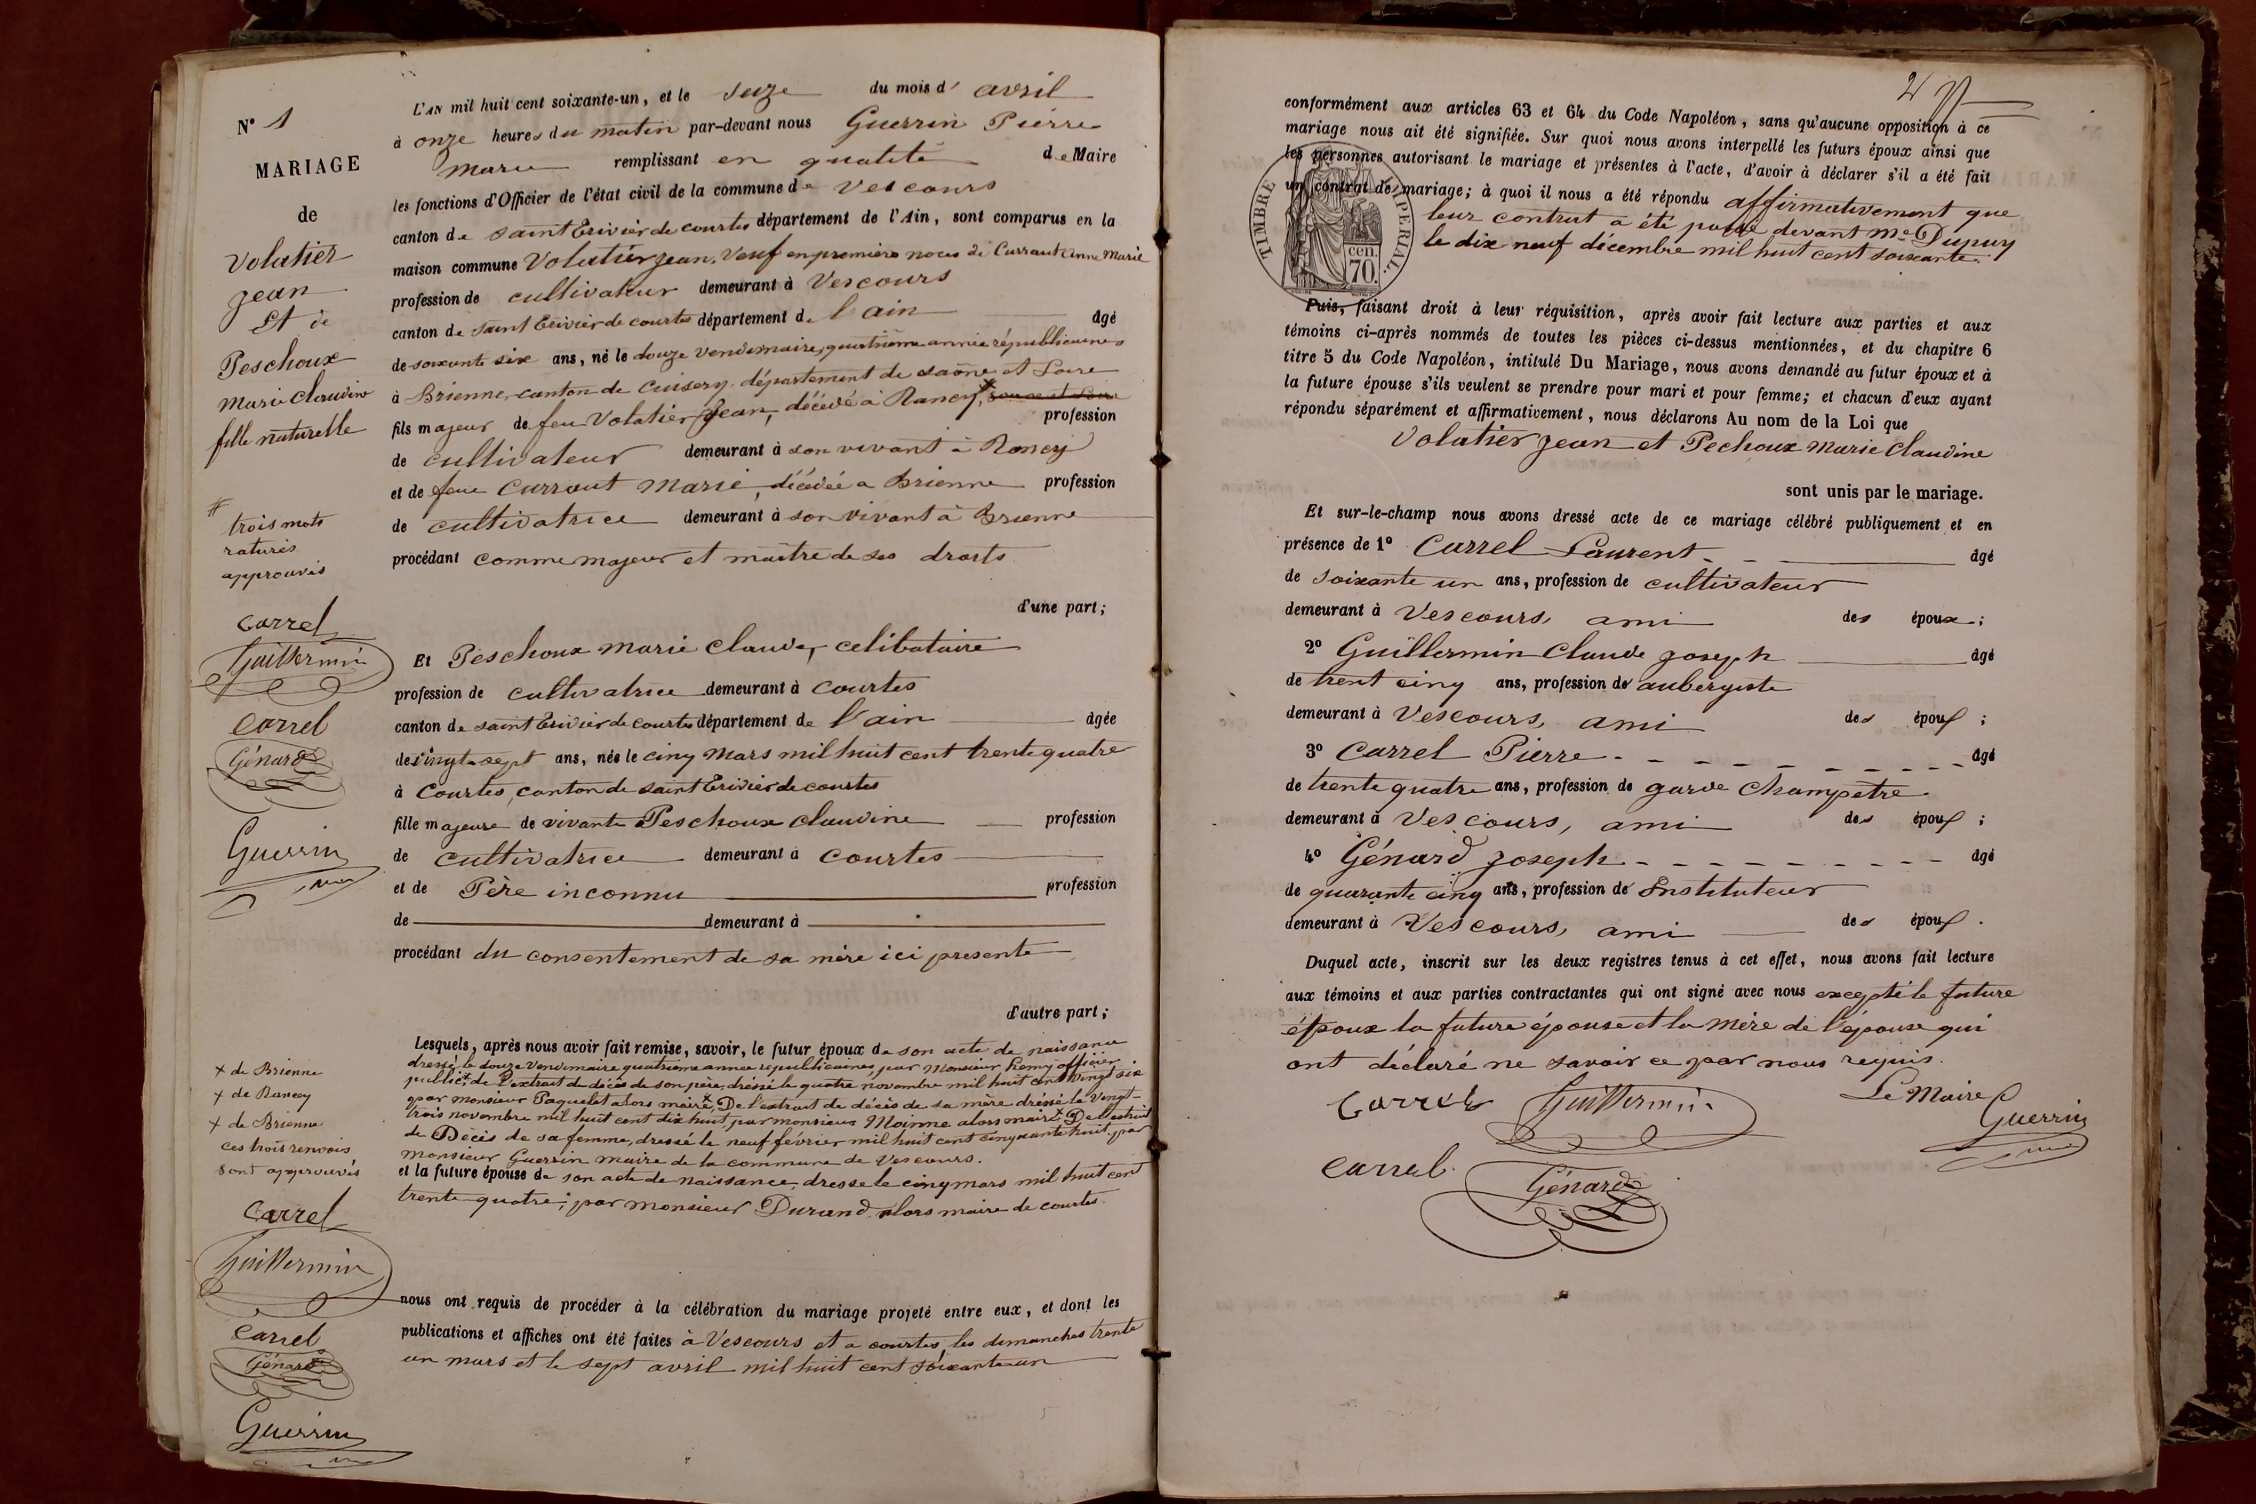 N° 1
MARIAGE
de
Volatier
Jean
Et de
Peschoux
Marie Claudine
fille naturelle
#
trois mots
raturés
approuvés
Carrel
Guillermin
Carrel
Génard
Guerrin
x de Brienne
x de Rancy
x de Brienne
ces trois renvois
sont approuvés
Carrel
Guillermin
Carrel
Génard
Guerrin
L'AN mil huit cent soixante-un, et le seize du mois d' avril
à onze heures du matin par-devant nous Guerrin Pierre
Marie remplissant en qualité de Maire
les fonctions d'Officier de l'état civil de la commune de Vescours
canton de Saint Trivier de Courtes département de l'Ain, sont comparus en la
maison commune Volatier Jean, Veuf en premières noces de Curraut Anne Marie
profession de cultivateur demeurant à Vescours
canton de Saint Trivier de Courtes département de l'ain âgé
de soixante six ans, né le douze Vendemaire, quatrième année républicaine
à Brienne, canton de Cuisery département de Saône et Loire
fils majeur de feu Volatier Jean, décédé à Rancy, # Saône et Loire profession
de cultivateur demeurant à son vivant à Rancy
et de feue Curraut Marie, décédée à Brienne profession
de cultivatrice demeurant à son vivant à Brienne
procédant comme majeur et maître de ses droits
d'une part;
Et Peschoux Marie Claude, celibataire
profession de cultivatrice demeurant à Courtes
canton de Saint Trivier de Courtes département de l'ain âgée
de vingt-sept ans, née le cinq Mars mil huit cent trente quatre
à Courtes, canton de Saint Trivier de Courtes
fille majeure de vivante Peschoux Claudine profession
de cultivatrice demeurant à Courtes
et de Père inconnu profession
de demeurant à
procédant du consentement de sa mère ici presente
d'autre part;
Lesquels, après nous avoir fait remise, savoir, le futur époux de son acte de naissance
dressé le douze Vendemaire quatrième année republicaines, par Monsieur Remy officier
public x, de l'extrait de décès de son père, dréssé le quatre novembre mil huit cent vingt six
par monsieur Paquelet alors maire x, De l'extrait de décès de sa mère dréssé le vingt-
trois novembre mil huit cent dix huit, par monsieur Moinne alors maire x, De l'extrait
de Décès de sa femme, dressé le neuf février mil huit cent cinquante huit, par
Monsieur Guerrin maire de la commune de Vescours.
et la future épouse de son acte de naissance, dresse le cinq mars mil huit cent
trente quatre, par monsieur Durand alors maire de Courtes.
nous ont requis de procéder à la célébration du mariage projeté entre eux, et dont les
publications et affiches ont été faites à Vescours et a Courtes, les dimanches trente
un mars et le sept avril mil huit cent soixante un
2
conformément aux articles 63 et 64 du Code Napoléon, sans qu'aucune opposition à ce
mariage nous ait été signifiée. Sur quoi nous avons interpellé les futurs époux ainsi que
les personnes autorisant le mariage et présentes à l'acte, d'avoir à déclarer s'il a été fait
un contrat de mariage; à quoi il nous a été répondu affirmativement que
leur contrat a été passé devant Me Dupuy
le dix neuf décembre mil huit cent soixante.
TIMBRE IMPERIAL.
cen.
70.
Puis, faisant droit à leur réquisition, après avoir fait lecture aux parties et aux
témoins ci-après nommés de toutes les pièces ci-dessus mentionnées, et du chapitre 6
titre 5 du Code Napoléon, intitulé Du Mariage, nous avons demandé au futur époux et à
la future épouse s'ils veulent se prendre pour mari et pour femme; et chacun d'eux ayant
répondu séparément et affirmativement, nous déclarons Au nom de la Loi que
Volatier Jean et Pechoux Marie Claudine
sont unis par le mariage.
Et sur-le-champ nous avons dressé acte de ce mariage célébré publiquement et en
présence de 1° Carrel Laurent âgé
de soixante un ans, profession de cultivateur
demeurant à Vescours, ami des époux;
2° Guillermin Claude Joseph âgé
de trent cinq ans, profession de aubergiste
demeurant à Vescours, ami des époux;
3° Carrel Pierre âgé
de trente quatre ans, profession de garde Champetre
demeurant à Vescours, ami des époux;
4° Génard Joseph âgé
de quarante cinq ans, profession de Instituteur
demeurant à Vescours, ami des époux.
Duquel acte, inscrit sur les deux registres tenus à cet effet, nous avons fait lecture
aux témoins et aux parties contractantes qui ont signé avec nous excepté le future
époux la future épouse et la mère de l'épouse qui
ont déclaré ne savoir ce par nous requis.
Carrel Guillermin Le Maire
Guerrin
Carrel Génard